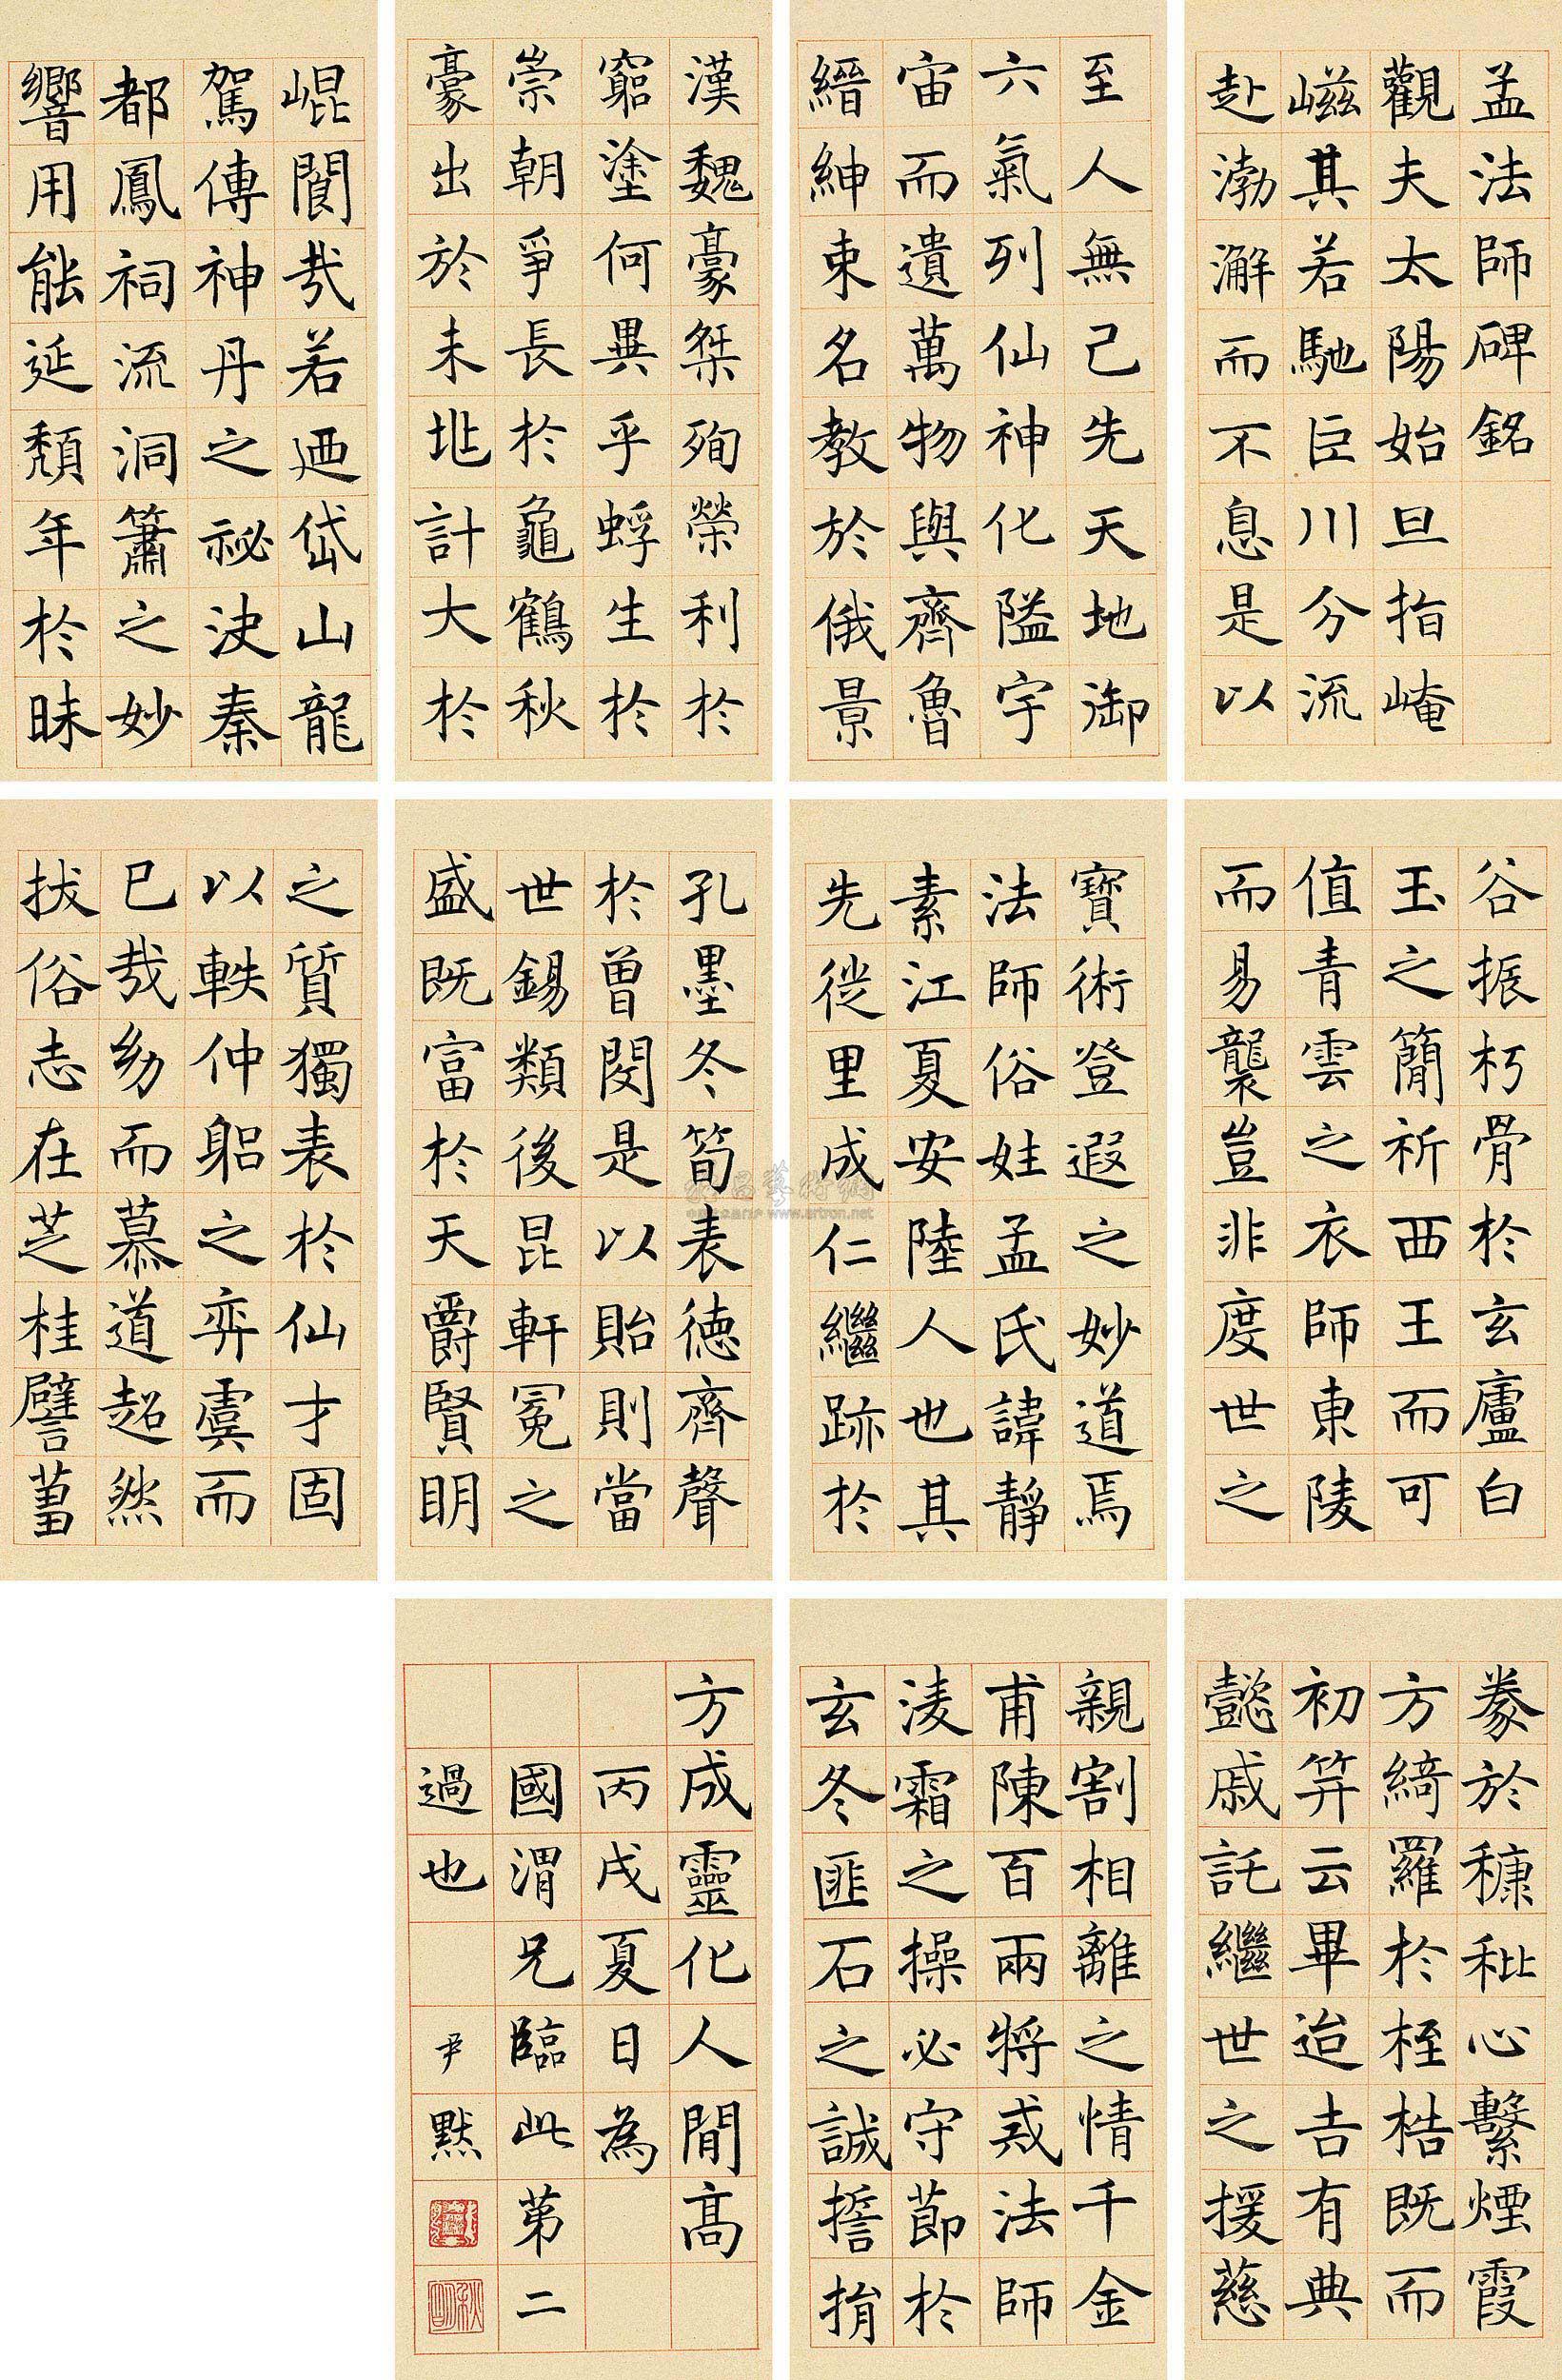 孟法師碑銘
觀夫太陽始旦指崦
嵫其若馳巨川分流
赴渤澥而不息是以
至人無己先天地御
六氣列仙神化隘宇
宙而遺萬物與齊魯
縉紳束名教於俄景
漢魏豪桀殉榮利於
窮塗何異乎蜉生於
崇朝爭長於龜鶴秋
豪出於未兆計大於
崐閬哉若迺岱山龍
駕傳神丹之祕決秦
都鳳祠流洞簫之妙
響用能延頹年於昧
谷振朽骨於玄廬白
玉之簡祈西王而可
值青雲之衣師東陵
而易襲豈非度世之
寶術登遐之妙道焉
法師俗姓孟氏諱靜
素江夏安陸人也其
先徙里成仁繼跡於
孔墨冬筍表德齊聲
於曾閔是以貽則當
世錫類後昆軒冕之
盛既富於天爵賢明
之質獨表於仙才固
以軼仲躬之弈虞而
已哉幼而慕道超然
拔俗志在芝桂譬葍
豢於糠秕心繫煙霞
方綺羅於桎梏既而
初笄云畢迨吉有典
懿戚託繼世之援慈
親割相離之情千金
甫陳百兩將戒法師
淩霜之操必守節於
玄冬匪石之誠誓捐
方成靈化人閒高
丙戌夏日為
國渭兄臨此第二
過也 尹默